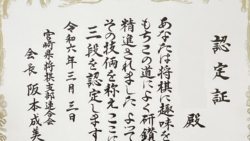 認定証
殿
あなたは将棋に趣味を
もちこの道によく研鑽
精進されました よって
その技倆を称えここに
三段を認定します
令和六年三月三日
宮崎県将棋支部連合会
会長 阪本成美